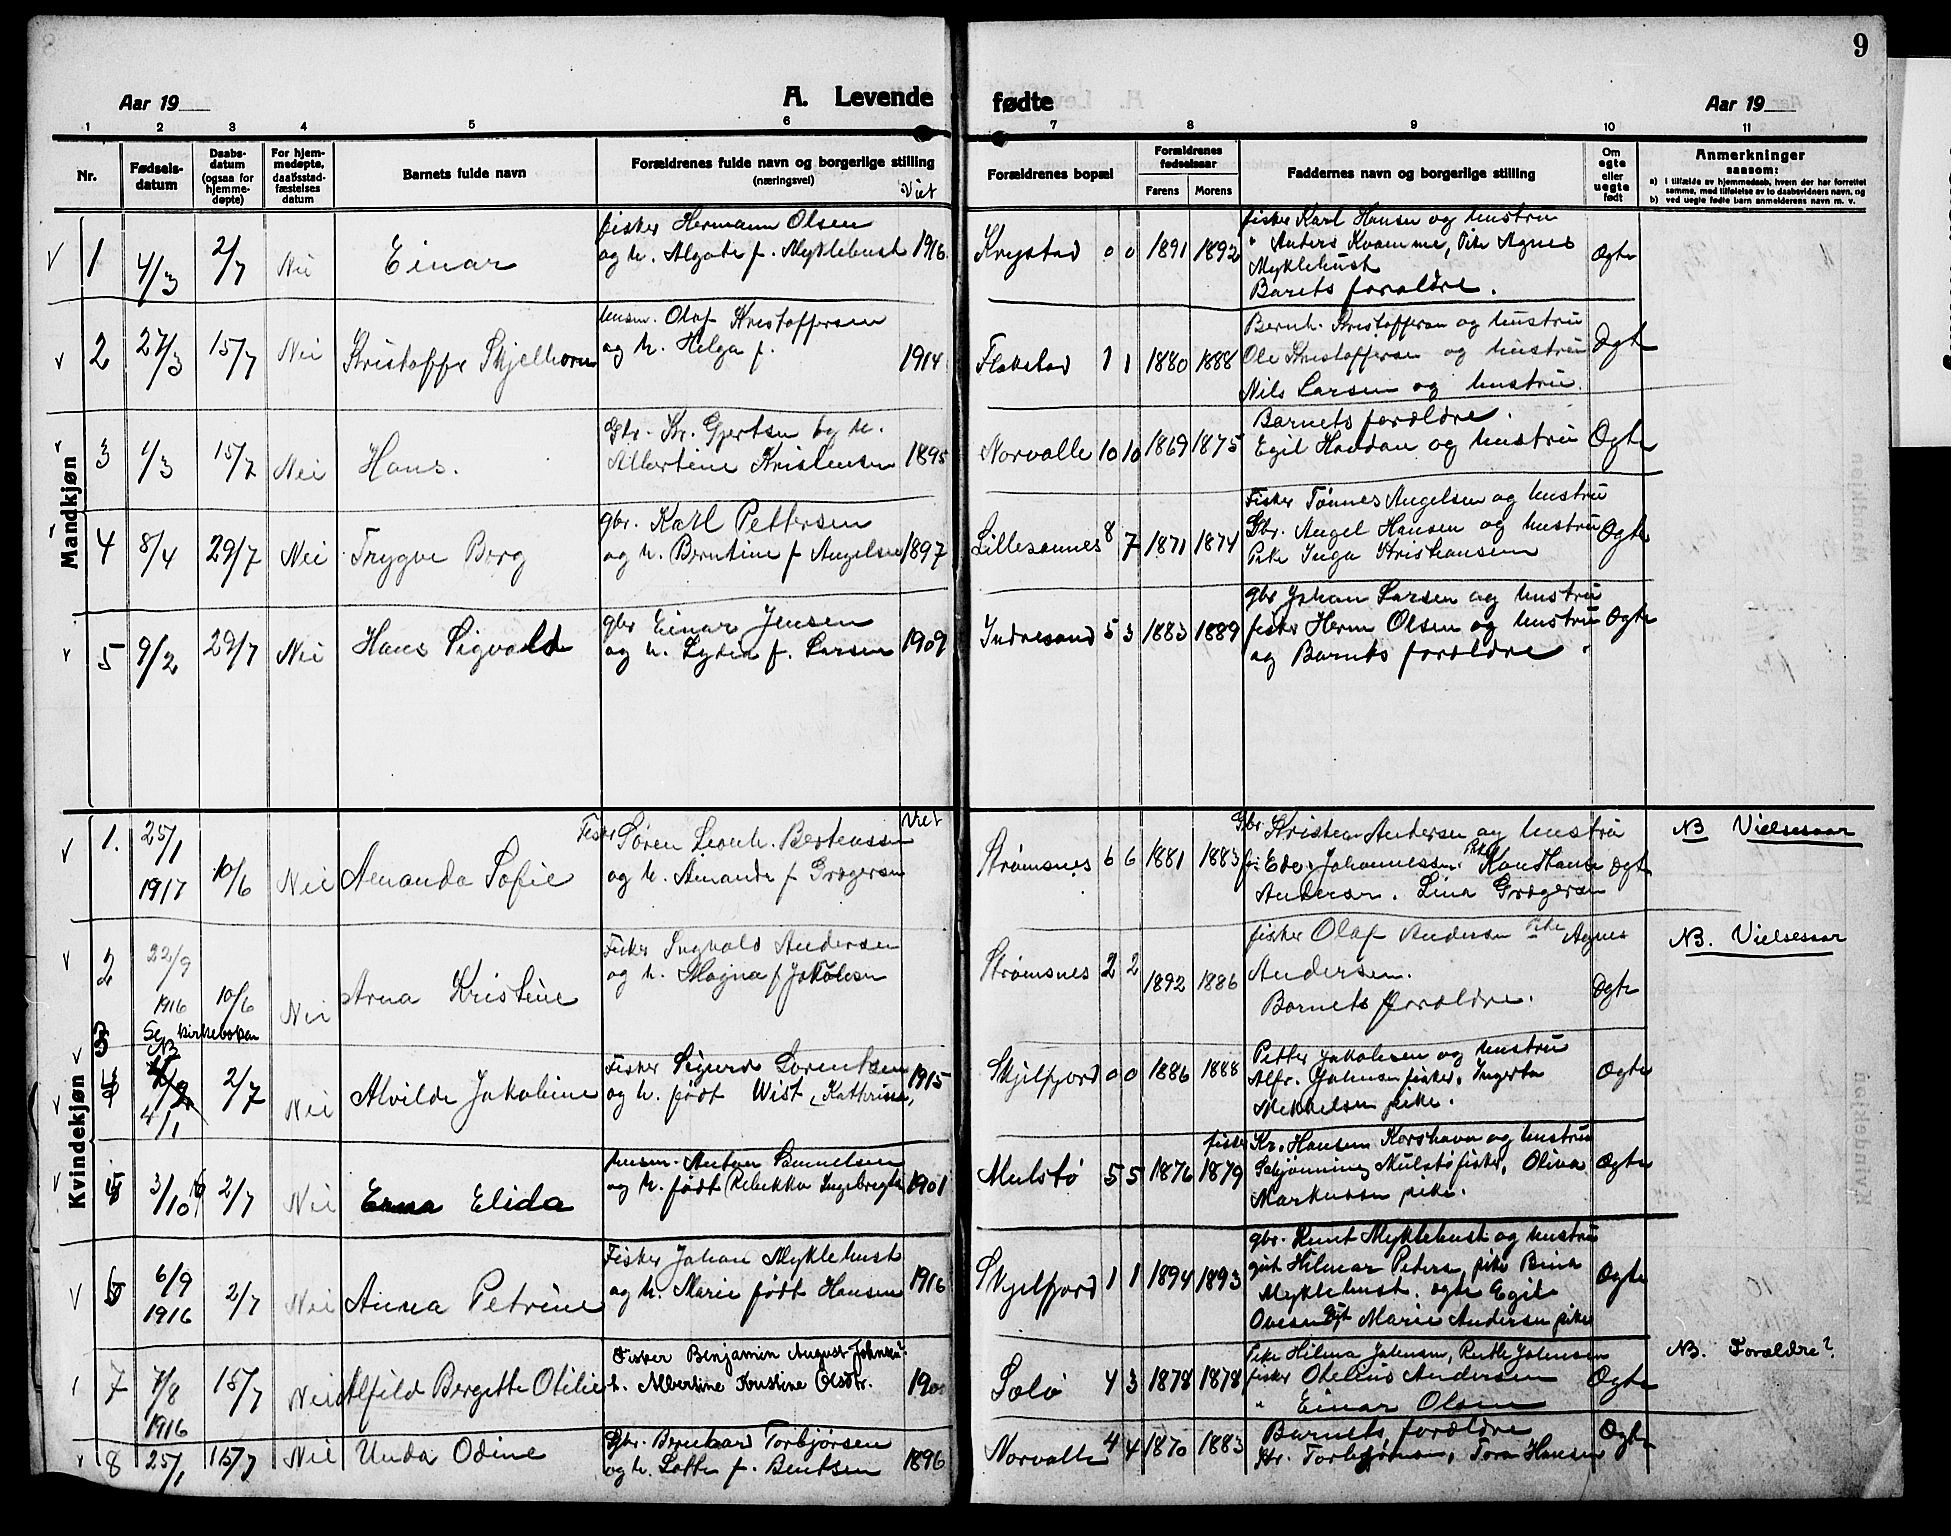 9
Aar 19
A. Levende
fødte
Aar 19
1 2 3 4 5 6 7 8 9 10 11
Nr.
Fødsels-
datum
Daabs-
datum
(ogsaa for
hjemme-
døpte)
For hjem-
medøpte,
daabsstad-
fæstelses
datum
Barnets fulde navn
Forældrenes fulde navn og borgerlige stilling
(næringsvei)
Viet
Forældrenes bopæl
Forældrenes
fødselsaar
Farens Morens
Faddernes navn og borgerlige stilling
Om
egte
eller
uegte
født
Anmerkninger
saasom:
a) i tilfælde av hjemmedaab, hvem der har forrettet
samme, med tilføielse av to daabsvidners navn, og
b) ved uegte fødte barn anmelderens navn m. v.
Mandkjøn
1 4/3 2/7 Nei Einar
fisker Hermann Olsen
og h. f. Myklebust 1916
Krystad 0 0 1891 1892
fisker Karl Hansen og hustru
" Anders Kvamme, Pike Agnes
Myklebust
Barets foreldre.
Ægte
2 27/3 15/7 Nei Kristoffer Skjelhorn
husm. Olaf Kristoffersen
og h. Helga f. 1914
Flakstad 1 1 1880 1888
Bernh. Kristoffersen og hustru
Ole Kristoffersen og hustru
Nils Larsen og hustru.
Ægte
3 1/3 15/7 Nei Hans.
Gbr. Kr. Gjertsen og h.
Albertine Kristensen 1895
Norvalle 10 10 1869 1875
Barnets foreldre.
Egil Haadan og hustru
Ægte
4 8/4 29/7 Nei Trygve Berg
gbr. Karl Pettersen
og h. Berntine f Angelsen 1897
Lillesannes 8 7 1871 1874
Fisker Tønnes Angelsen og hustru
Gbr. Angel Hansen og hustru
Pike Inga Kristiansen
Ægte
5 9/2 29/7 Nei Hans Sigvald
gbr Einar Jensen
og h. Lydia f. Larsen 1909
Indresand 5 3 1883 1889
gbr Johan Larsen og hustru
fisker Herm Olsen og hustru
og Barnets foreldre.
Ægte
Kvindekjøn
Viet
1. 25/1
1917 10/6 Nei Amanda Sofie
Fisker Søren Leonh. Berteussen
og h. Amanda f Grægersen
Strømsnes 6 6 1881 1883
Gbr Kristian Andersen og hustru
Johannessen. Pike Konstanse
Andersen. Lina Grægersen
Ægte
NB Vielsesaar
2 22/9
1916 10/6 Nei Arna Kristine
Fisker Ingvald Andersen
og h. Magna f Jakobsen
Strømsnes 2 2 1892 1886
fisker Olaf Andersen Pike Agnes
Andersen.
Barnets foreldre.
Ægte
NB. Vielsesaar
Se kirkeboken
NB
4/1 2/7 Nei Alvilde Jakobine
Fisker Sigurd Lorentsen
og h. født Wist, Kathrine, 1915
Skjelfjord 0 0 1886 1888
Petter Jakobsen og hustru
Alfr. Johnsen fisker. Ingerta
Mikkelsen pike.
Ægte
5 3/10 16 2/7 Nei Erna Elida
husm. Anton Samuelsen
og h. født Rebekka Ingebrigts 1901
Mulstø 5 5 1876 1879
fisker Kr. Hansen Korshavn og hustru
Schjønning Mulstø fisker, Oliva
Markussen pike.
Ægte
6 6/9
1916 2/7 Nei Anna Petrine
Fisker Johan Myklebust
og h. Marie født Hansen 1916
Skjelfjord 1 1 1894 1893
gbr. Knut Myklebust og hustru
gut Hilmar Peters, pike Bina
Myklebust. ogte Egil
Ovesen gut Marie Andersen pike
Ægte
7 7/8
1916 15/7 Nei Alfild Bergitte Otilie
Fisker Benjamin August Johnsen
h. Albertine Kristine Olsdtr. 190
Solø 4 3 1878 1878
Pike Hilma Johnsen, Ruth Johnsen
fisker Otelius Andersen
" Einar Olsen
Ægte
NB. Forældre?
8 25/1 15/7 Nei Unda Odine
Gbr. Bernhard Torbjørsen
og h. Lotte f. Bentsen 1896
Norvalle 4 4 1870 1883
Barnets foreldre
Kr. Torbjørnsen, Tora Hansen
Ægte